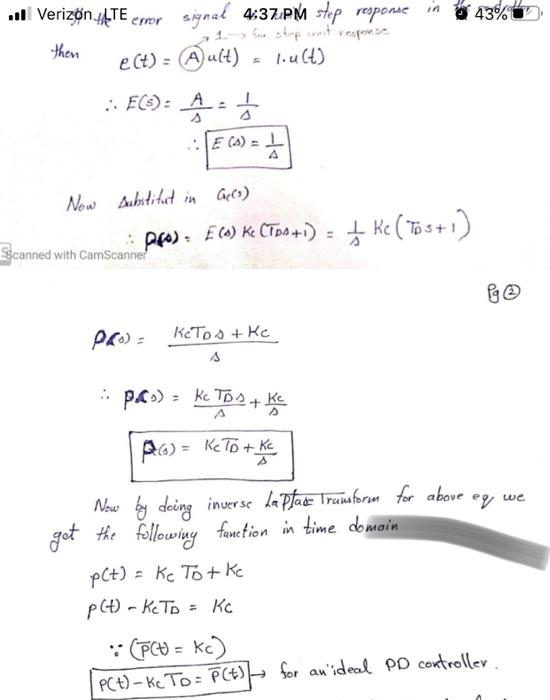 Verizon LTE 4:37 PM 43%
the error signal step response in the
1 → for step unit response
then e(t) = A u(t) = 1.u(t)
∴ E(s) = A/s = 1/s
∴ E(s) = 1/s
Now substitut in Gc(s)
∴ P(s) = E(s) Kc (TDs+1) = 1/s Kc (TDs+1)
Scanned with CamScanner
Pg ②
P(s) = KcTDs + Kc / s
∴ P(s) = Kc TDs / s + Kc / s
P(s) = KcTD + Kc / s
Now by doing inverse LaPlace Transform for above eq we
get the following function in time domain
p(t) = Kc TD + Kc
p(t) - KcTD = Kc
∵ (p̄(t) = Kc)
p(t) - Kc TD = p̄(t) → for an ideal PD controller.